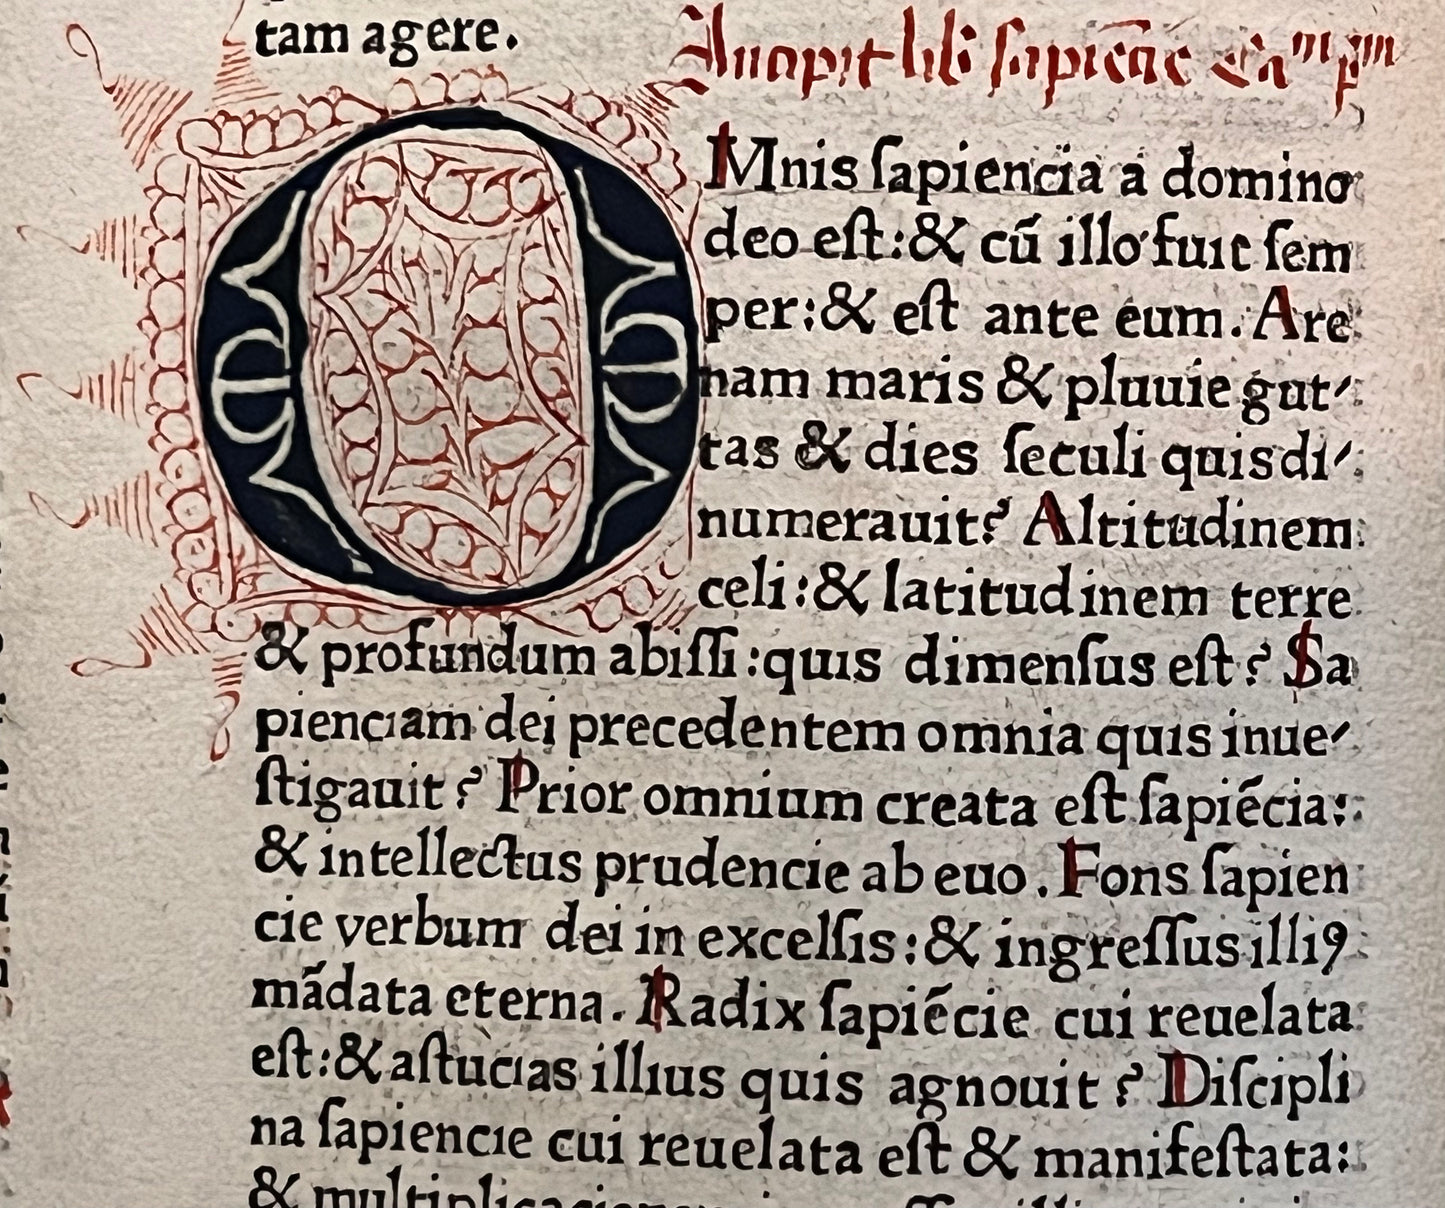 tam agere.
Incipit lib sapiēcie Ca^m p^m
OMnis ſapiencia a domino
deo eſt:& cū illo fuit ſem
per:& eſt ante eum. Are
nam maris & pluuie gut⸗
tas & dies ſeculi quis di⸗
numerauit? Altitudinem
celi:& latitudinem terre
& profundum abiſſi:quis dimenſus eſt? Sa
pienciam dei precedentem omnia quis inue⸗
ſtigauit? Prior omnium creata eſt ſapiēcia:
& intellectus prudencie ab euo. Fons ſapien
cie verbum dei in excelſis:& ingreſſus illiꝰ
mādata eterna. Radix ſapiēcie cui reuelata
eſt:& aſtucias illius quis agnouit? Diſcipli
na ſapiencie cui reuelata eſt & manifeſtata:
& multiplicacionem